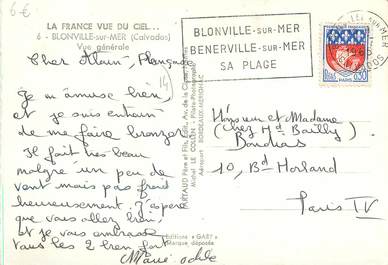 6€
LA FRANCE VUE DU CIEL...
6 - BLONVILLE-sur-MER (Calvados)
Vue générale
Cher Alain, Françoise
Je m'amuse bien
et je suis entrain
de me faire bronzer
Il fait très beau
malgré un peu de
vent mais pas froid
heureusement. J'espère
que vous allez bien
et je vous embrasse
tous les 2 bien fort
Marie Odile
14
Editions "GABY"
Marque déposée
ARTAUD Père et Fils, Edit., Av. de la
Michel LE COLLEN - Pilote-Photographe
Aéroport BORDEAUX-MÉRIGNAC
BLONVILLE-sur-MER
BENERVILLE-sur-MER
SA PLAGE
CALVADOS
0,30
Monsieur et Madame
(chez Md Bailly)
10, Bd Morland
Paris IV